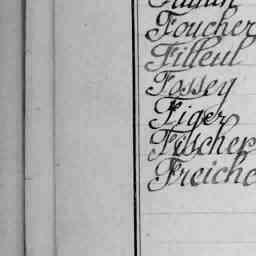 Foucher
Filleul
Fossey
Figer
Fischer
Freiche